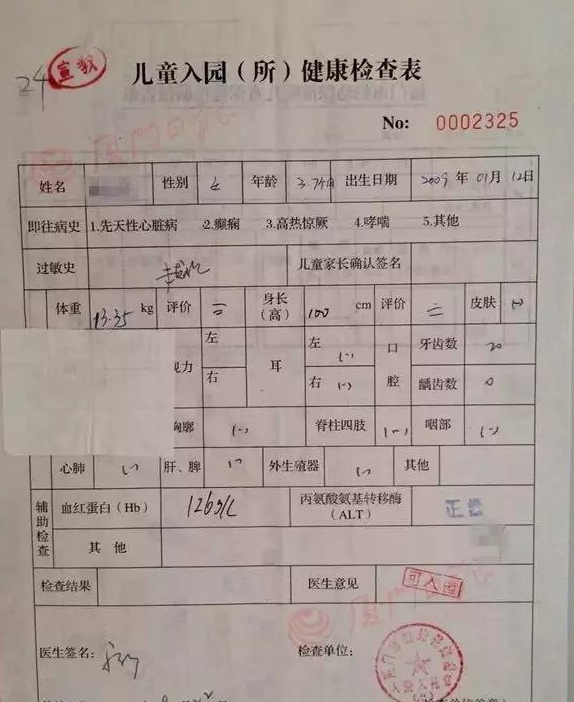 24 宣教
儿童入园（所）健康检查表
No: 0002325
姓名 性别 女 年龄 出生日期 2009 年 01 月 12 日
即往病史 1.先天性心脏病 2.癫痫 3.高热惊厥 4.哮喘 5.其他
过敏史 儿童家长确认签名
体重 13.35 kg 评价 三 身长（高） 100 cm 评价 三 皮肤 (-)
左 左 (-) 牙齿数 20
力 耳 口腔
右 右 (-) 龋齿数 0
廓 (-) 脊柱四肢 (-) 咽部 (-)
心肺 (-) 肝、脾 (-) 外生殖器 (-) 其他
辅助检查 血红蛋白（Hb） 126g/L 丙氨酸氨基转移酶（ALT） 正常
其他
检查结果 医生意见 可入园
医生签名： 检查单位：